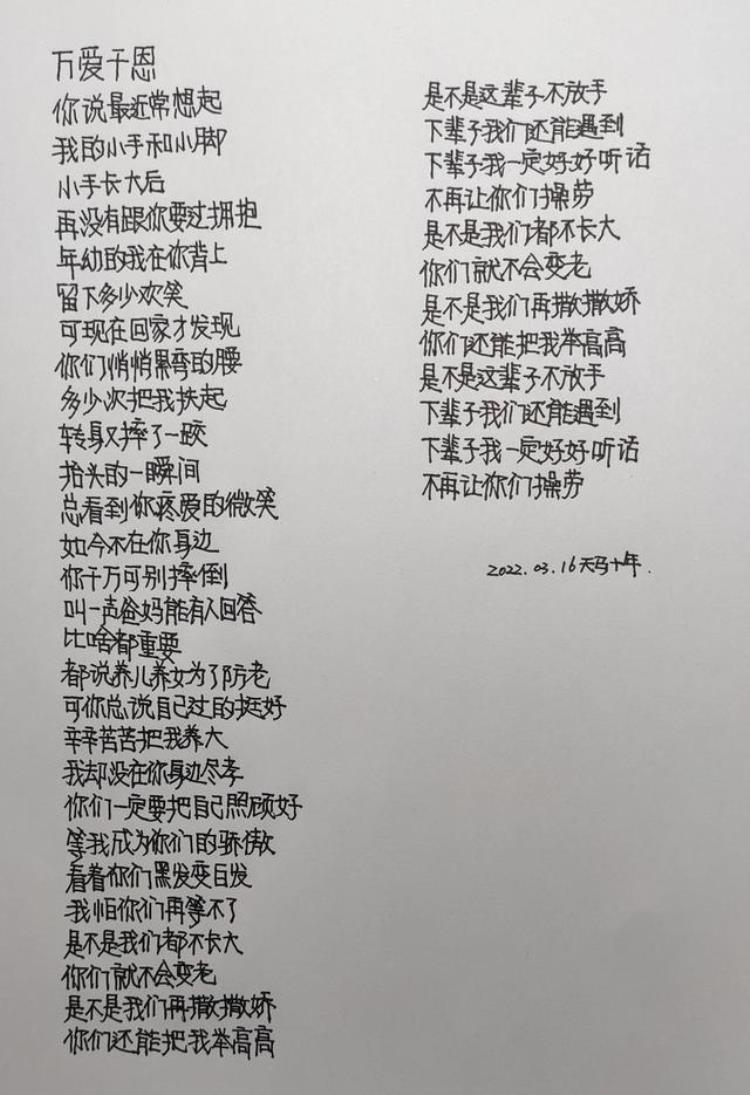 万爱千恩
你说最近常想起
我的小手和小脚
小手长大后
再没有跟你要过拥抱
年幼的我在你背上
留下多少欢笑
可现在回家才发现
你们悄悄累弯的腰
多少次把我扶起
转身又摔了一跤
抬头的一瞬间
总看到你疼爱的微笑
如今不在你身边
你千万可别摔倒
叫一声爸妈能有人回答
比啥都重要
都说养儿养女为了防老
可你总说自己过的挺好
辛辛苦苦把我养大
我却没在你身边尽孝
你们一定要把自己照顾好
等我成为你们的骄傲
看着你们黑发变白发
我怕你们再等不了
是不是我们都不长大
你们就不会变老
是不是我们再撒撒娇
你们还能把我举高高
是不是这辈子不放手
下辈子我们还能遇到
下辈子我一定好好听话
不再让你们操劳
是不是我们都不长大
你们就不会变老
是不是我们再撒撒娇
你们还能把我举高高
是不是这辈子不放手
下辈子我们还能遇到
下辈子我一定好好听话
不再让你们操劳
2022.03.16天马十年.